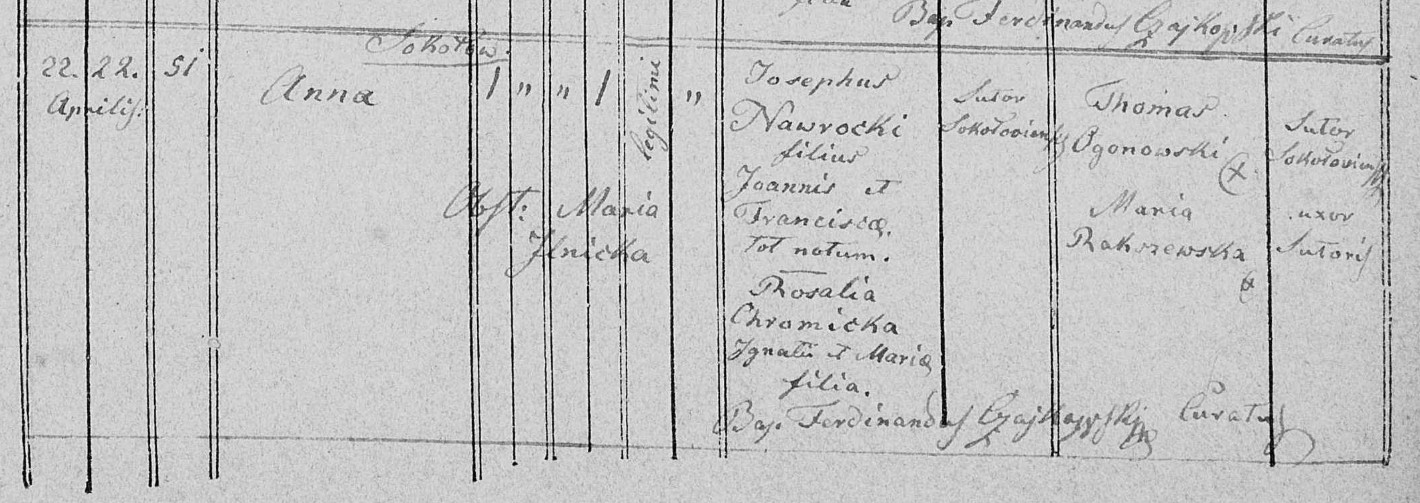 Bap. Ferdinandus Czajkowski Curatus
Sokołów.
22. 22. 51
Aprilis.
Anna
1 " " 1 legitimi "
Obst: Maria
Ilnicka
Josephus
Nawrocki
filius
Joannis et
Franciscæ.
tot notum.
Rosalia
Chromicka
Ignatii et Mariæ
filia.
Sutor
Sokołoviensis
Thomas
Ogonowski
Maria
Rakszewska
Sutor
Sokołoviensis
uxor
Sutoris
Bap. Ferdinandus Czajkowski Curatus